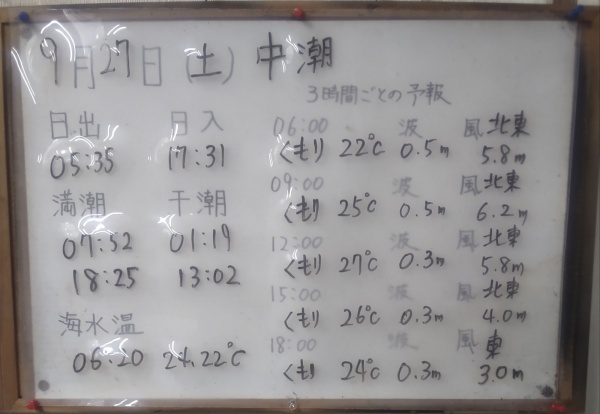 9月27日(土) 中潮
3時間ごとの予報
日出 日入
05:35 17:31
満潮 干潮
07:32 01:19
18:25 13:02
海水温
06:20 24.22℃
06:00 波 風 北東
くもり 22℃ 0.5m 5.8m
09:00 波 風 北東
くもり 25℃ 0.5m 6.2m
12:00 波 風 北東
くもり 27℃ 0.3m 5.8m
15:00 波 風 北東
くもり 26℃ 0.3m 4.0m
18:00 波 風 東
くもり 24℃ 0.3m 3.0m